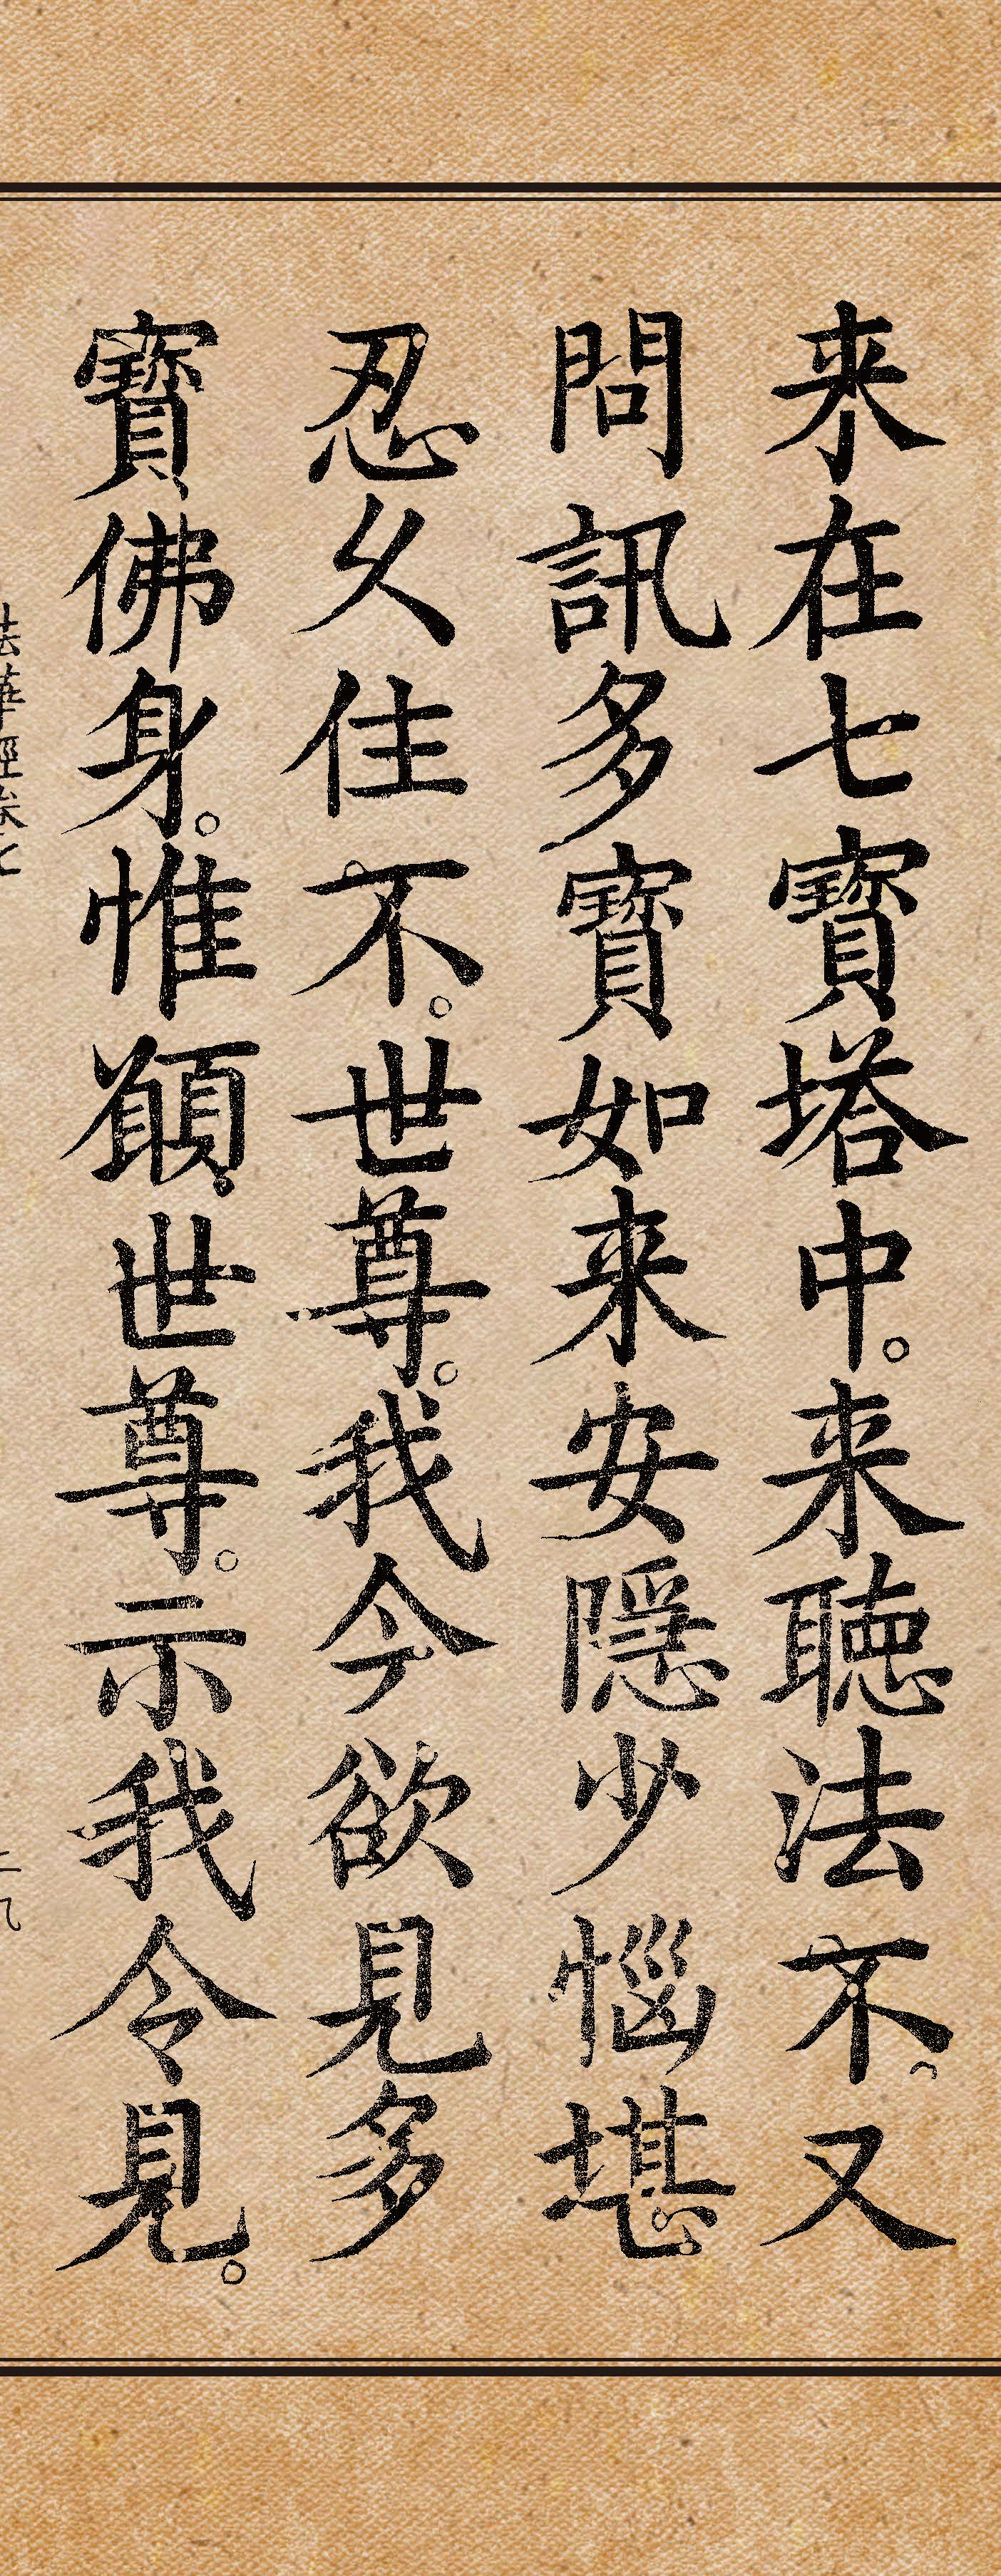 来在七寶塔中。来聴法不。又
問訊多寶如来安隱少惱堪
忍久住不。世尊。我今欲見多
寶佛身。惟願世尊。示我令見。